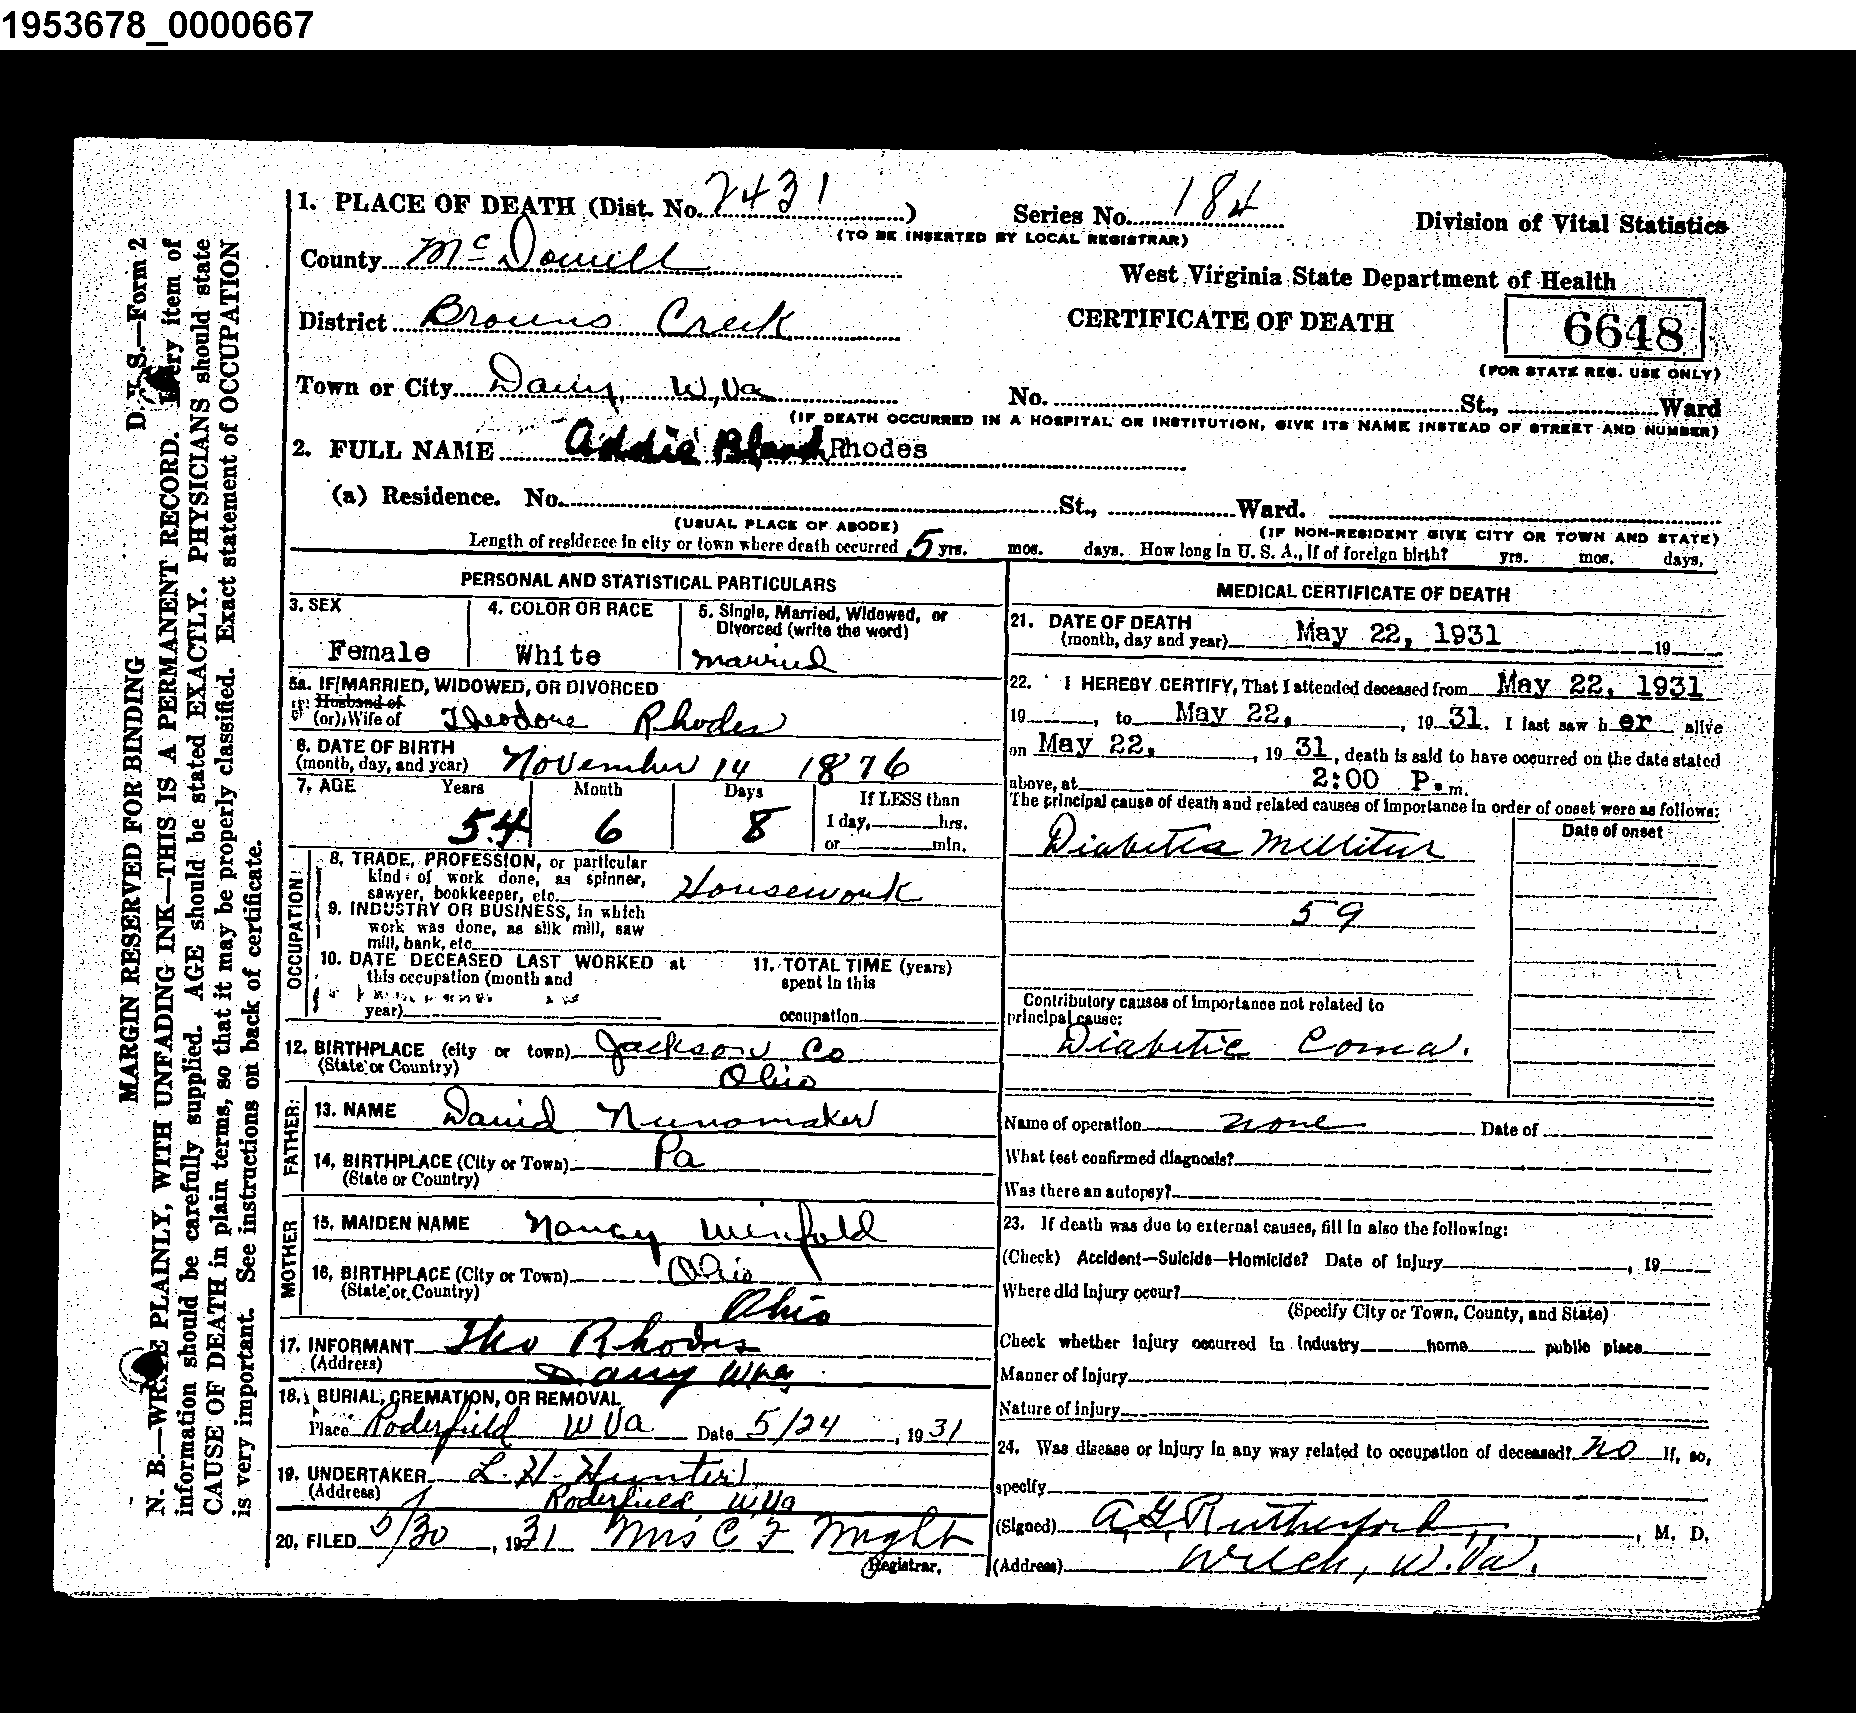 1953678_0000667
1. PLACE OF DEATH (Dist. No. 2431 )
Series No. 184
Division of Vital Statistics
(TO BE INSERTED BY LOCAL REGISTRAR)
County McDowell
West Virginia State Department of Health
District Browns Creek
CERTIFICATE OF DEATH
6648
(FOR STATE REG. USE ONLY)
Town or City Davy, W,Va
No. St., Ward
(IF DEATH OCCURRED IN A HOSPITAL OR INSTITUTION, GIVE ITS NAME INSTEAD OF STREET AND NUMBER)
2. FULL NAME Addie Bland Rhodes
(a) Residence. No. St., Ward.
(USUAL PLACE OF ABODE)
(IF NON-RESIDENT GIVE CITY OR TOWN AND STATE)
Length of residence in city or town where death occurred 5 yrs. mos. days. How long in U. S. A., if of foreign birth? yrs. mos. days.
PERSONAL AND STATISTICAL PARTICULARS
3. SEX
Female
4. COLOR OR RACE
White
5. Single, Married, Widowed, or
Divorced (write the word)
married
5a. IF MARRIED, WIDOWED, OR DIVORCED
Husband of
(or) Wife of Theodore Rhodes
6. DATE OF BIRTH
(month, day, and year) November 14 1876
7. AGE Years Month Days
54 6 8
If LESS than
1 day, hrs.
or min.
OCCUPATION
8. TRADE, PROFESSION, or particular
kind of work done, as spinner,
sawyer, bookkeeper, etc. Housework
9. INDUSTRY OR BUSINESS, in which
work was done, as silk mill, saw
mill, bank, etc.
10. DATE DECEASED LAST WORKED at
this occupation (month and
year)
11. TOTAL TIME (years)
spent in this
occupation
12. BIRTHPLACE (city or town) Jackson Co
(State or Country) Ohio
FATHER:
13. NAME David Nunamaker
14. BIRTHPLACE (City or Town) Pa
(State or Country)
MOTHER
15. MAIDEN NAME Nancy Winfold
16. BIRTHPLACE (City or Town) Ohio
(State or Country) Ohio
17. INFORMANT Tho Rhodes
(Address) Davy W Va
18. BURIAL, CREMATION, OR REMOVAL
Place Roderfield W Va Date 5/24, 1931
19. UNDERTAKER L. H. Hunter
(Address) Roderfield W Va
20. FILED 5/30, 1931 Mrs C F Wright
Registrar.
MEDICAL CERTIFICATE OF DEATH
21. DATE OF DEATH
(month, day and year) May 22, 1931 19
22. I HEREBY CERTIFY, That I attended deceased from May 22, 1931
19 , to May 22, , 19 31. I last saw h er alive
on May 22, , 19 31, death is said to have occurred on the date stated
above, at 2:00 P.m.
The principal cause of death and related causes of importance in order of onset were as follows:
Date of onset
Diabetes Millitus
59
Contributory causes of importance not related to
principal cause:
Diabetic Coma.
Name of operation none Date of
What test confirmed diagnosis?
Was there an autopsy?
23. If death was due to external causes, fill in also the following:
(Check) Accident—Suicide—Homicide? Date of injury , 19
Where did injury occur?
(Specify City or Town, County, and State)
Check whether injury occurred in industry home public place
Manner of injury
Nature of injury
24. Was disease or injury in any way related to occupation of deceased? no If, so,
specify
(Signed) A,G,Rutherford, M. D.
(Address) Welch, W.Va.
D. V. S.—Form 2
MARGIN RESERVED FOR BINDING
N. B.—WRITE PLAINLY, WITH UNFADING INK—THIS IS A PERMANENT RECORD. Every item of
information should be carefully supplied. AGE should be stated EXACTLY. PHYSICIANS should state
CAUSE OF DEATH in plain terms, so that it may be properly classified. Exact statement of OCCUPATION
is very important. See instructions on back of certificate.